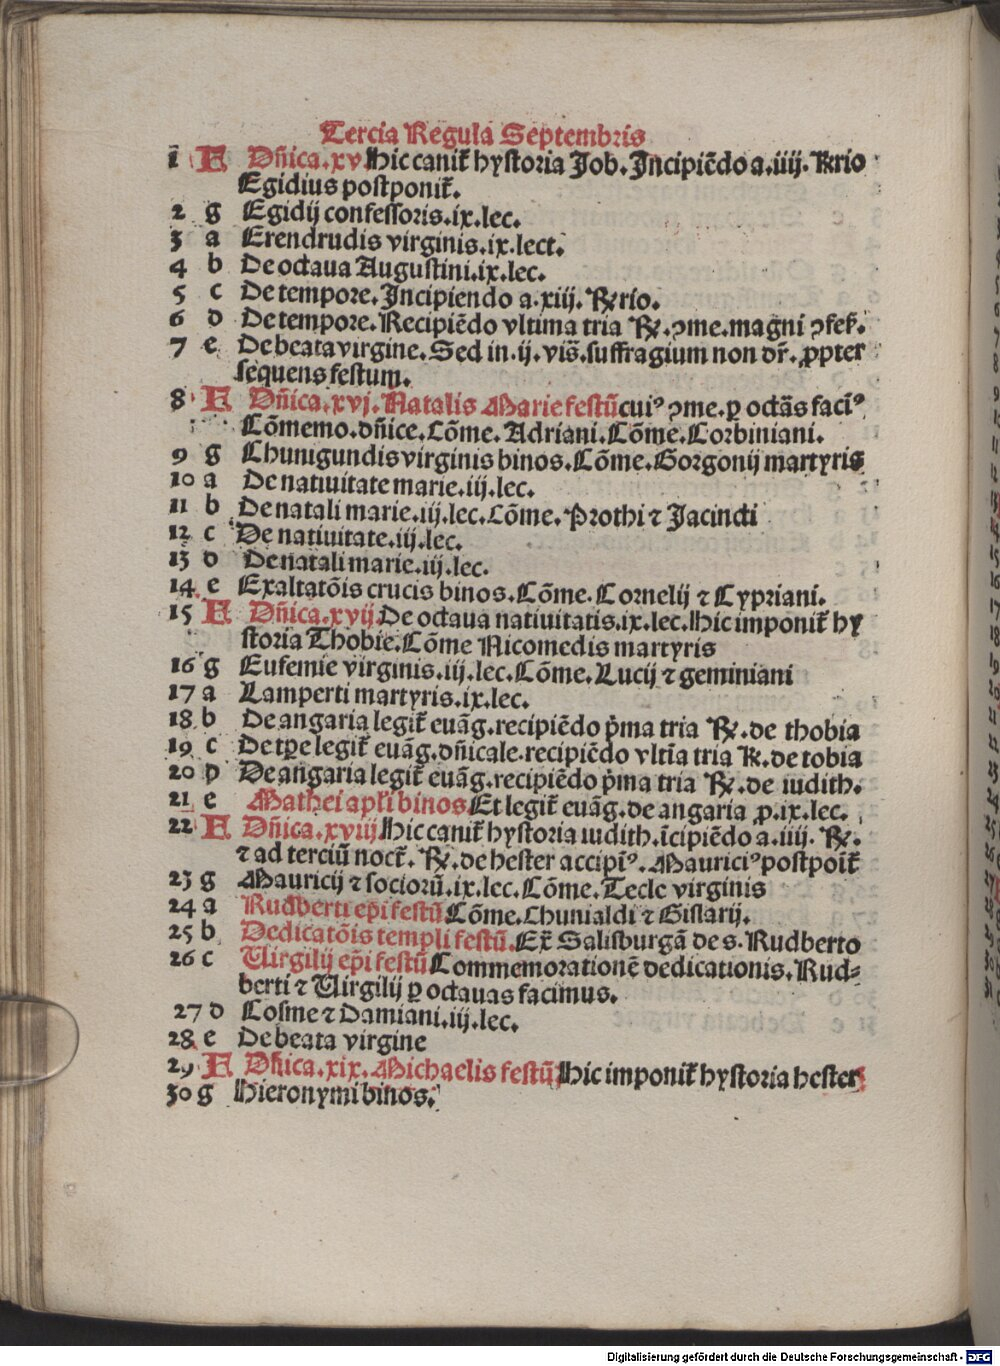 Tercia Regula Septembris
1 F Dñica.xv Hic canit᷑ hystoria Job. Incipiẽdo a.iiij. Rrio
Egidius postponit᷑.
2 g Egidij confessoris.ix.lec.
3 a Erendrudis virginis.ix.lect.
4 b De octaua Augustini.ix.lec.
5 c De tempore. Incipiendo a.xiij. Rrio.
6 d De tempore. Recipiẽdo vltima tria R. ↄme.magni ↄfeſ.
7 e De beata virgine. Sed in.ij.vis̃.suffragium non dr̃. ꝓpter
sequens festum.
8 F Dñica.xvj. Natalis Marie festũ cuiꝰ ↄme. ꝑ octãs facīꝰ
Cõmemo.dñice. Cõme. Adriani. Cõme. Corbiniani.
9 g Chunigundis virginis binos. Cõme. Gorgonij martyris
10 a De natiuitate marie.iij.lec.
11 b De natali marie.iij.lec. Cõme. Prothi ⁊ Jacincti
12 c De natiuitate.iij.lec.
13 d De natali marie.iij.lec.
14 e Exaltatõis crucis binos. Cõme. Cornelij ⁊ Cypriani.
15 F Dñica.xvij. De octaua natiuitatis.ix.lec. Hic imponit᷑ hy
storia Thobie. Cõme Nicomedis martyris
16 g Eufemie virginis.iij.lec. Cõme. Lucij ⁊ geminiani
17 a Lamperti martyris.ix.lec.
18 b De angaria legit᷑ euãg.recipiẽdo p̃ma tria R. de thobia
19 c De tꝑe legit᷑ euãg.dñicale.recipiẽdo vltĩa tria R. de tobia
20 d De angaria legit᷑ euãg.recipiẽdo p̃ma tria R. de iudith.
21 e Mathei apl̃i binos Et legit᷑ euãg.de angaria ꝓ.ix.lec.
22 F Dñica.xviij Hic canit᷑ hystoria iudith.ĩcipiẽdo a.iiij. R.
⁊ ad terciũ noct᷑. R. de hester accipīꝰ. Mauriciꝰ postpoĩt᷑
23 g Mauricij ⁊ sociorũ.ix.lec. Cõme. Tecle virginis
24 a Rudberti ep̃i festũ Cõme. Chunialdi ⁊ Gislarij.
25 b Dedicatõis templi festũ. Ex̃ Salisburgã de s. Rudberto
26 c Virgilij ep̃i festũ Commemorationẽ dedicationis. Rud=
berti ⁊ Virgilij ꝑ octauas facimus.
27 d Cosme ⁊ Damiani.iij.lec.
28 e De beata virgine
29 F Dñica.xix. Michaelis festũ Hic imponit᷑ hystoria hester
30 g Hieronymi binos.
Digitalisierung gefördert durch die Deutsche Forschungsgemeinschaft - DFG